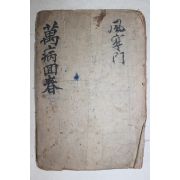 風寒门
萬病回春